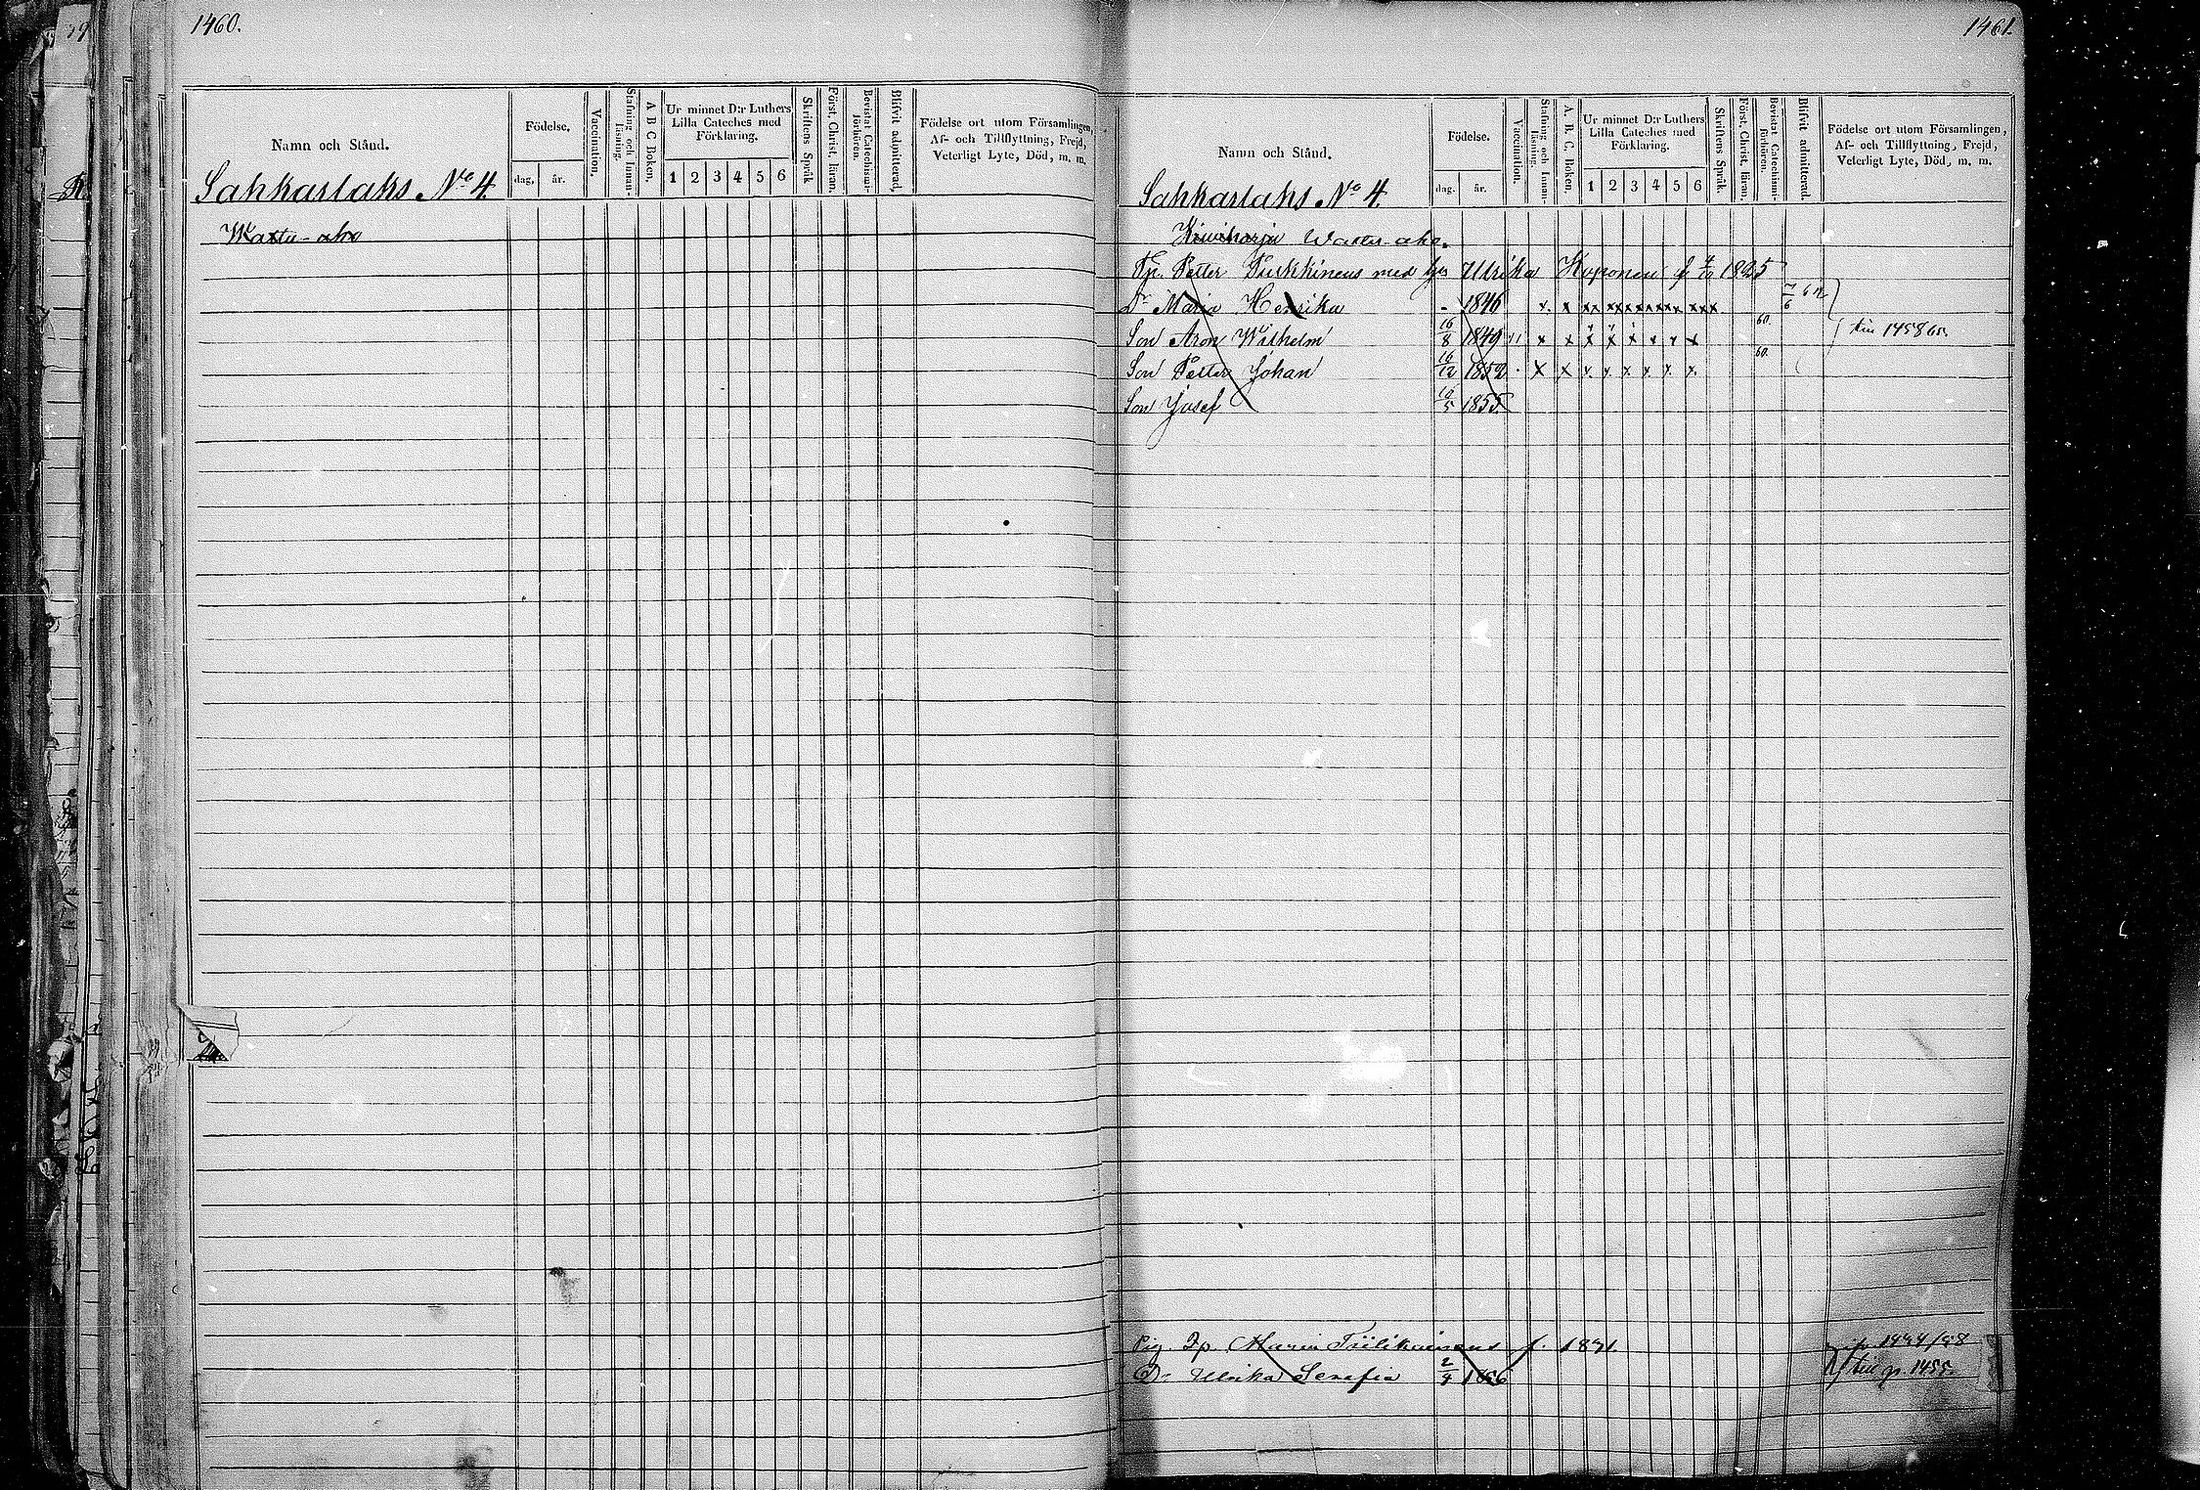 1460.
Namn och Stånd.
Födelse.
dag,
år.
Vaccination.
Stafning och Innan-läsning.
A B C Boken.
Ur minnet D:r Luthers Lilla Cateches med Förklaring.
1 2 3 4 5 6
Skriftens Språk
Först. Christ. läran.
Bevistat Catechismi-förhören.
Blifvit admitterad
Födelse ort utom Församlingen,
Af- och Tillflyttning, Frejd,
Veterligt Lyte, Död, m. m.
Sakkarlaks No 4.
1461.
Namn och Stånd.
Födelse.
dag.
år.
Vaccination.
Stafning och Innan-läsning.
A. B. C. Boken.
Ur minnet D:r Luthers Lilla Cateches med Förklaring.
1 2 3 4 5 6
Skriftens Språk.
Först. Christ. läran.
Bevistat Catechismi-förhören.
Blifvit admitterad.
Födelse ort utom Församlingen,
Af- och Tillflyttning, Frejd,
Veterligt Lyte, Död, m. m.
Sakkarlaks No 4.
Petter med Ulrika Huponen f. 1825
Dr Maria Henrika - 1846 x x
Son Aron Wilhelm 16/8 1849 x x x x x x x x 60. 1458
Son Petter Johan 16/12 1852 x x x x x x x x 60.
Son Josef 10/5 1855
Maria f. 1831
Dr Ulrika Serafia 2/9 1856 till p. 1455.